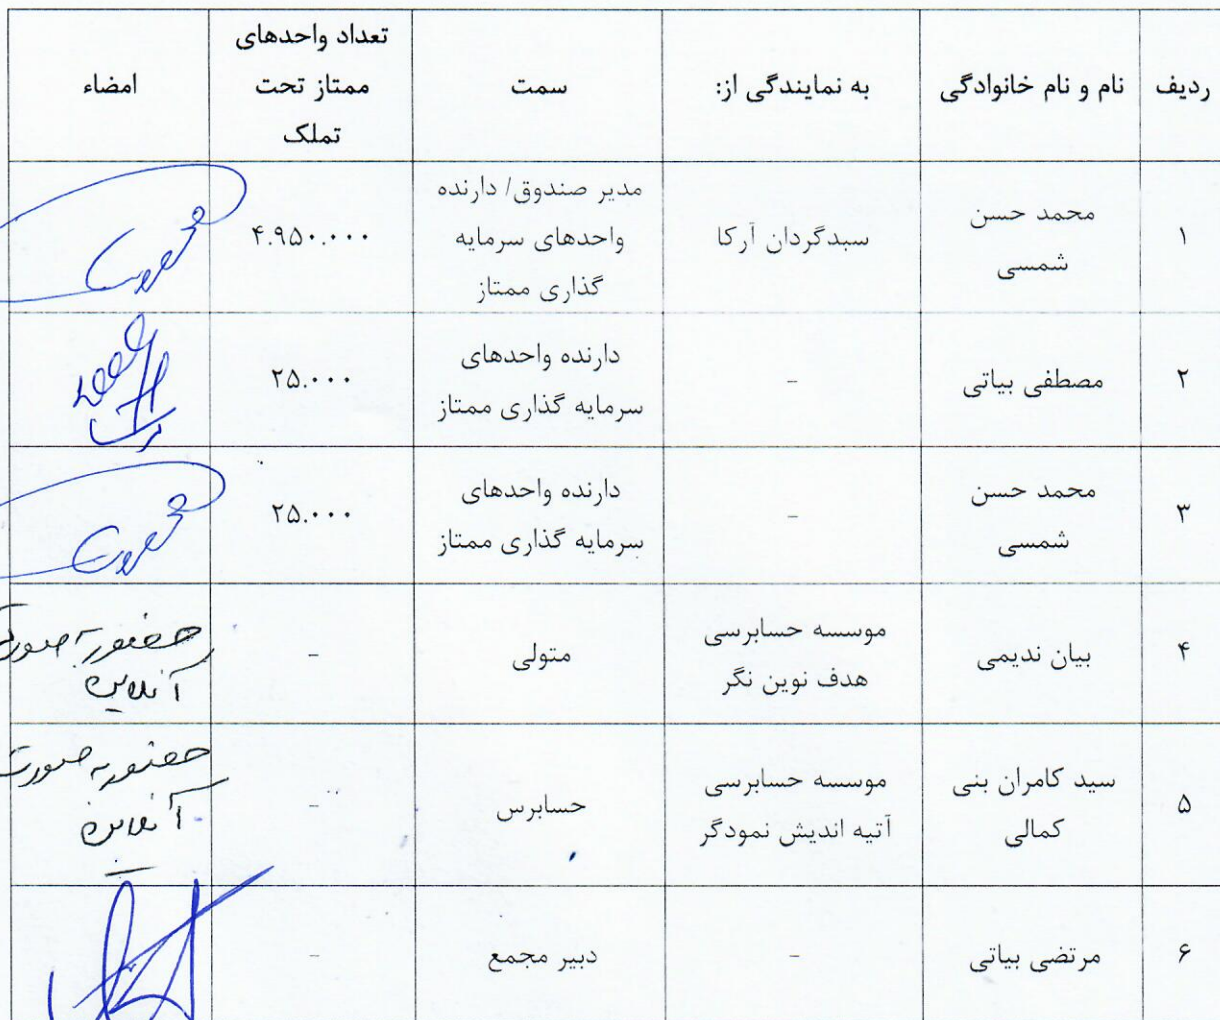 ردیف
نام و نام خانوادگی
به نمایندگی از:
سمت
تعداد واحدهای
ممتاز تحت
تملک
امضاء
۱
محمد حسن
شمسی
سبدگردان آرکا
مدیر صندوق/ دارنده
واحدهای سرمایه
گذاری ممتاز
۴.۹۵۰.۰۰۰
۲
مصطفی بیاتی
-
دارنده واحدهای
سرمایه گذاری ممتاز
۲۵.۰۰۰
۳
محمد حسن
شمسی
-
دارنده واحدهای
سرمایه گذاری ممتاز
۲۵.۰۰۰
۴
بیان ندیمی
موسسه حسابرسی
هدف نوین نگر
متولی
-
حضور به صورت
آنلاین
۵
سید کامران بنی
کمالی
موسسه حسابرسی
آتیه اندیش نمودگر
حسابرس
-
حضور به صورت
آنلاین
۶
مرتضی بیاتی
-
دبیر مجمع
-